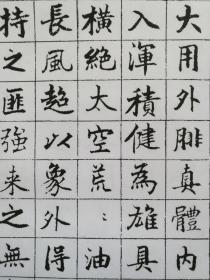 大用外腓真體内
入渾積健為雄具
橫絶太空荒〻油
長風超以象外得
持之匪強来之無